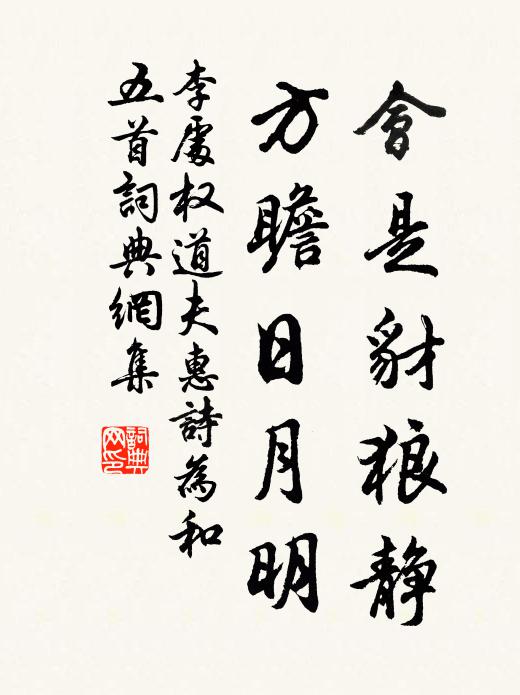 會是豺狼静
方瞻日月明
李處权道夫惠詩為和
五首詞典網集
詞典
网印